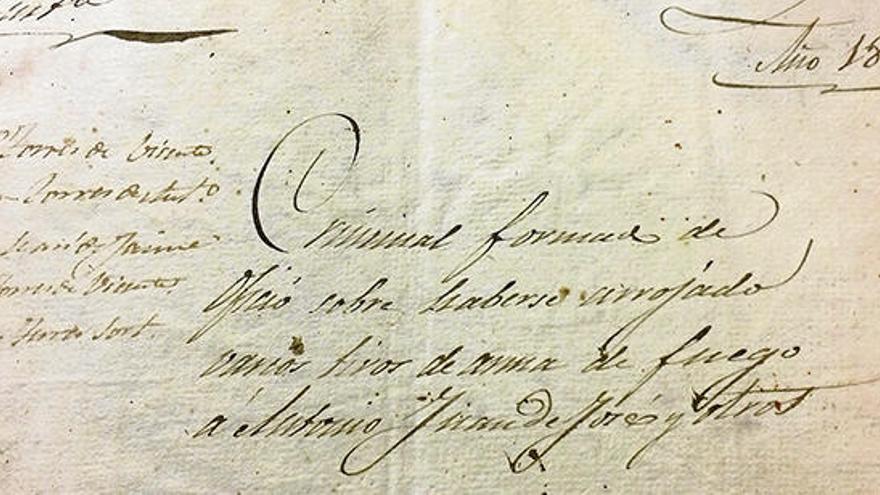 Año 18
Torres de Vicente.
Torres de Ant.º
Juan de Jaime
Torres de Vicente
Torres Jort.
Criminal formado de
Oficio sobre haberse arrojado
varios tiros de arma de fuego
á Antonio Juan de José y otros